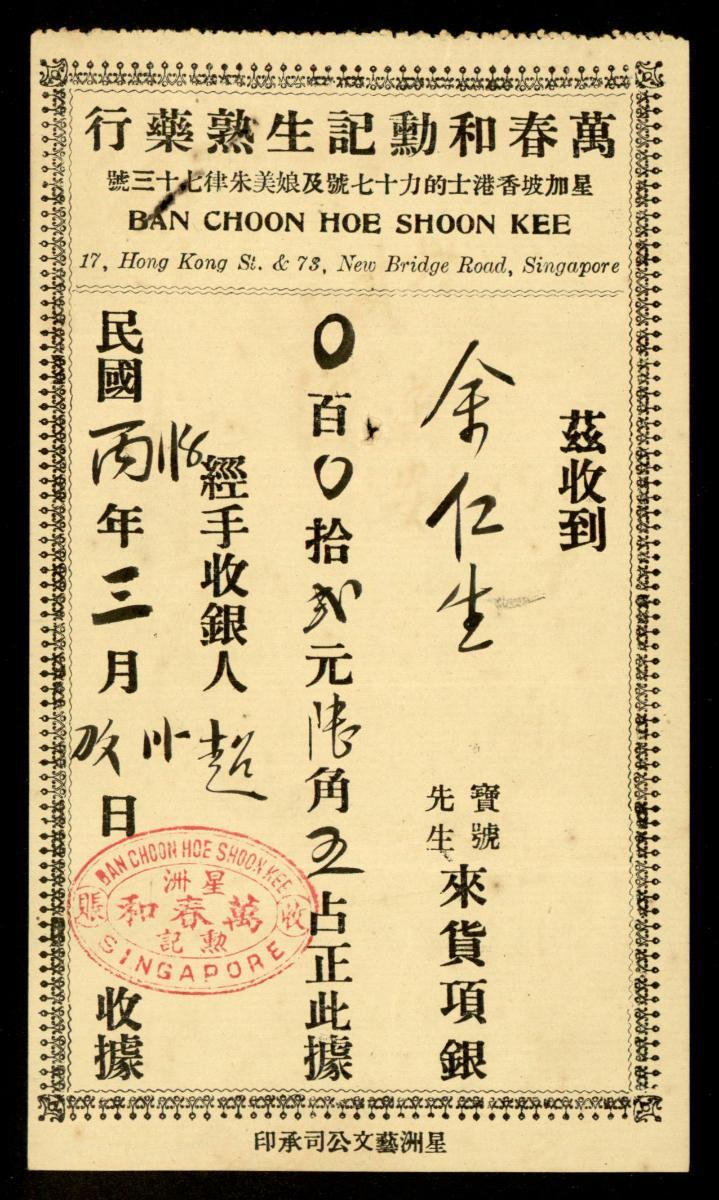 萬春和勳記生熟藥行
星加坡香港士的力十七號及娘美朱律七十三號
BAN CHOON HOE SHOON KEE
17, Hong Kong St. & 73, New Bridge Road, Singapore
茲收到
余仁生
寶號
先生
來貨項銀
0百0拾弍元陸角五占正此據
經手收銀人
超
民國丙年三月
日
收據
BAN CHOON HOE SHOON KEE
星洲
萬春和
勳記
收賬
SINGAPORE
星洲藝文公司承印